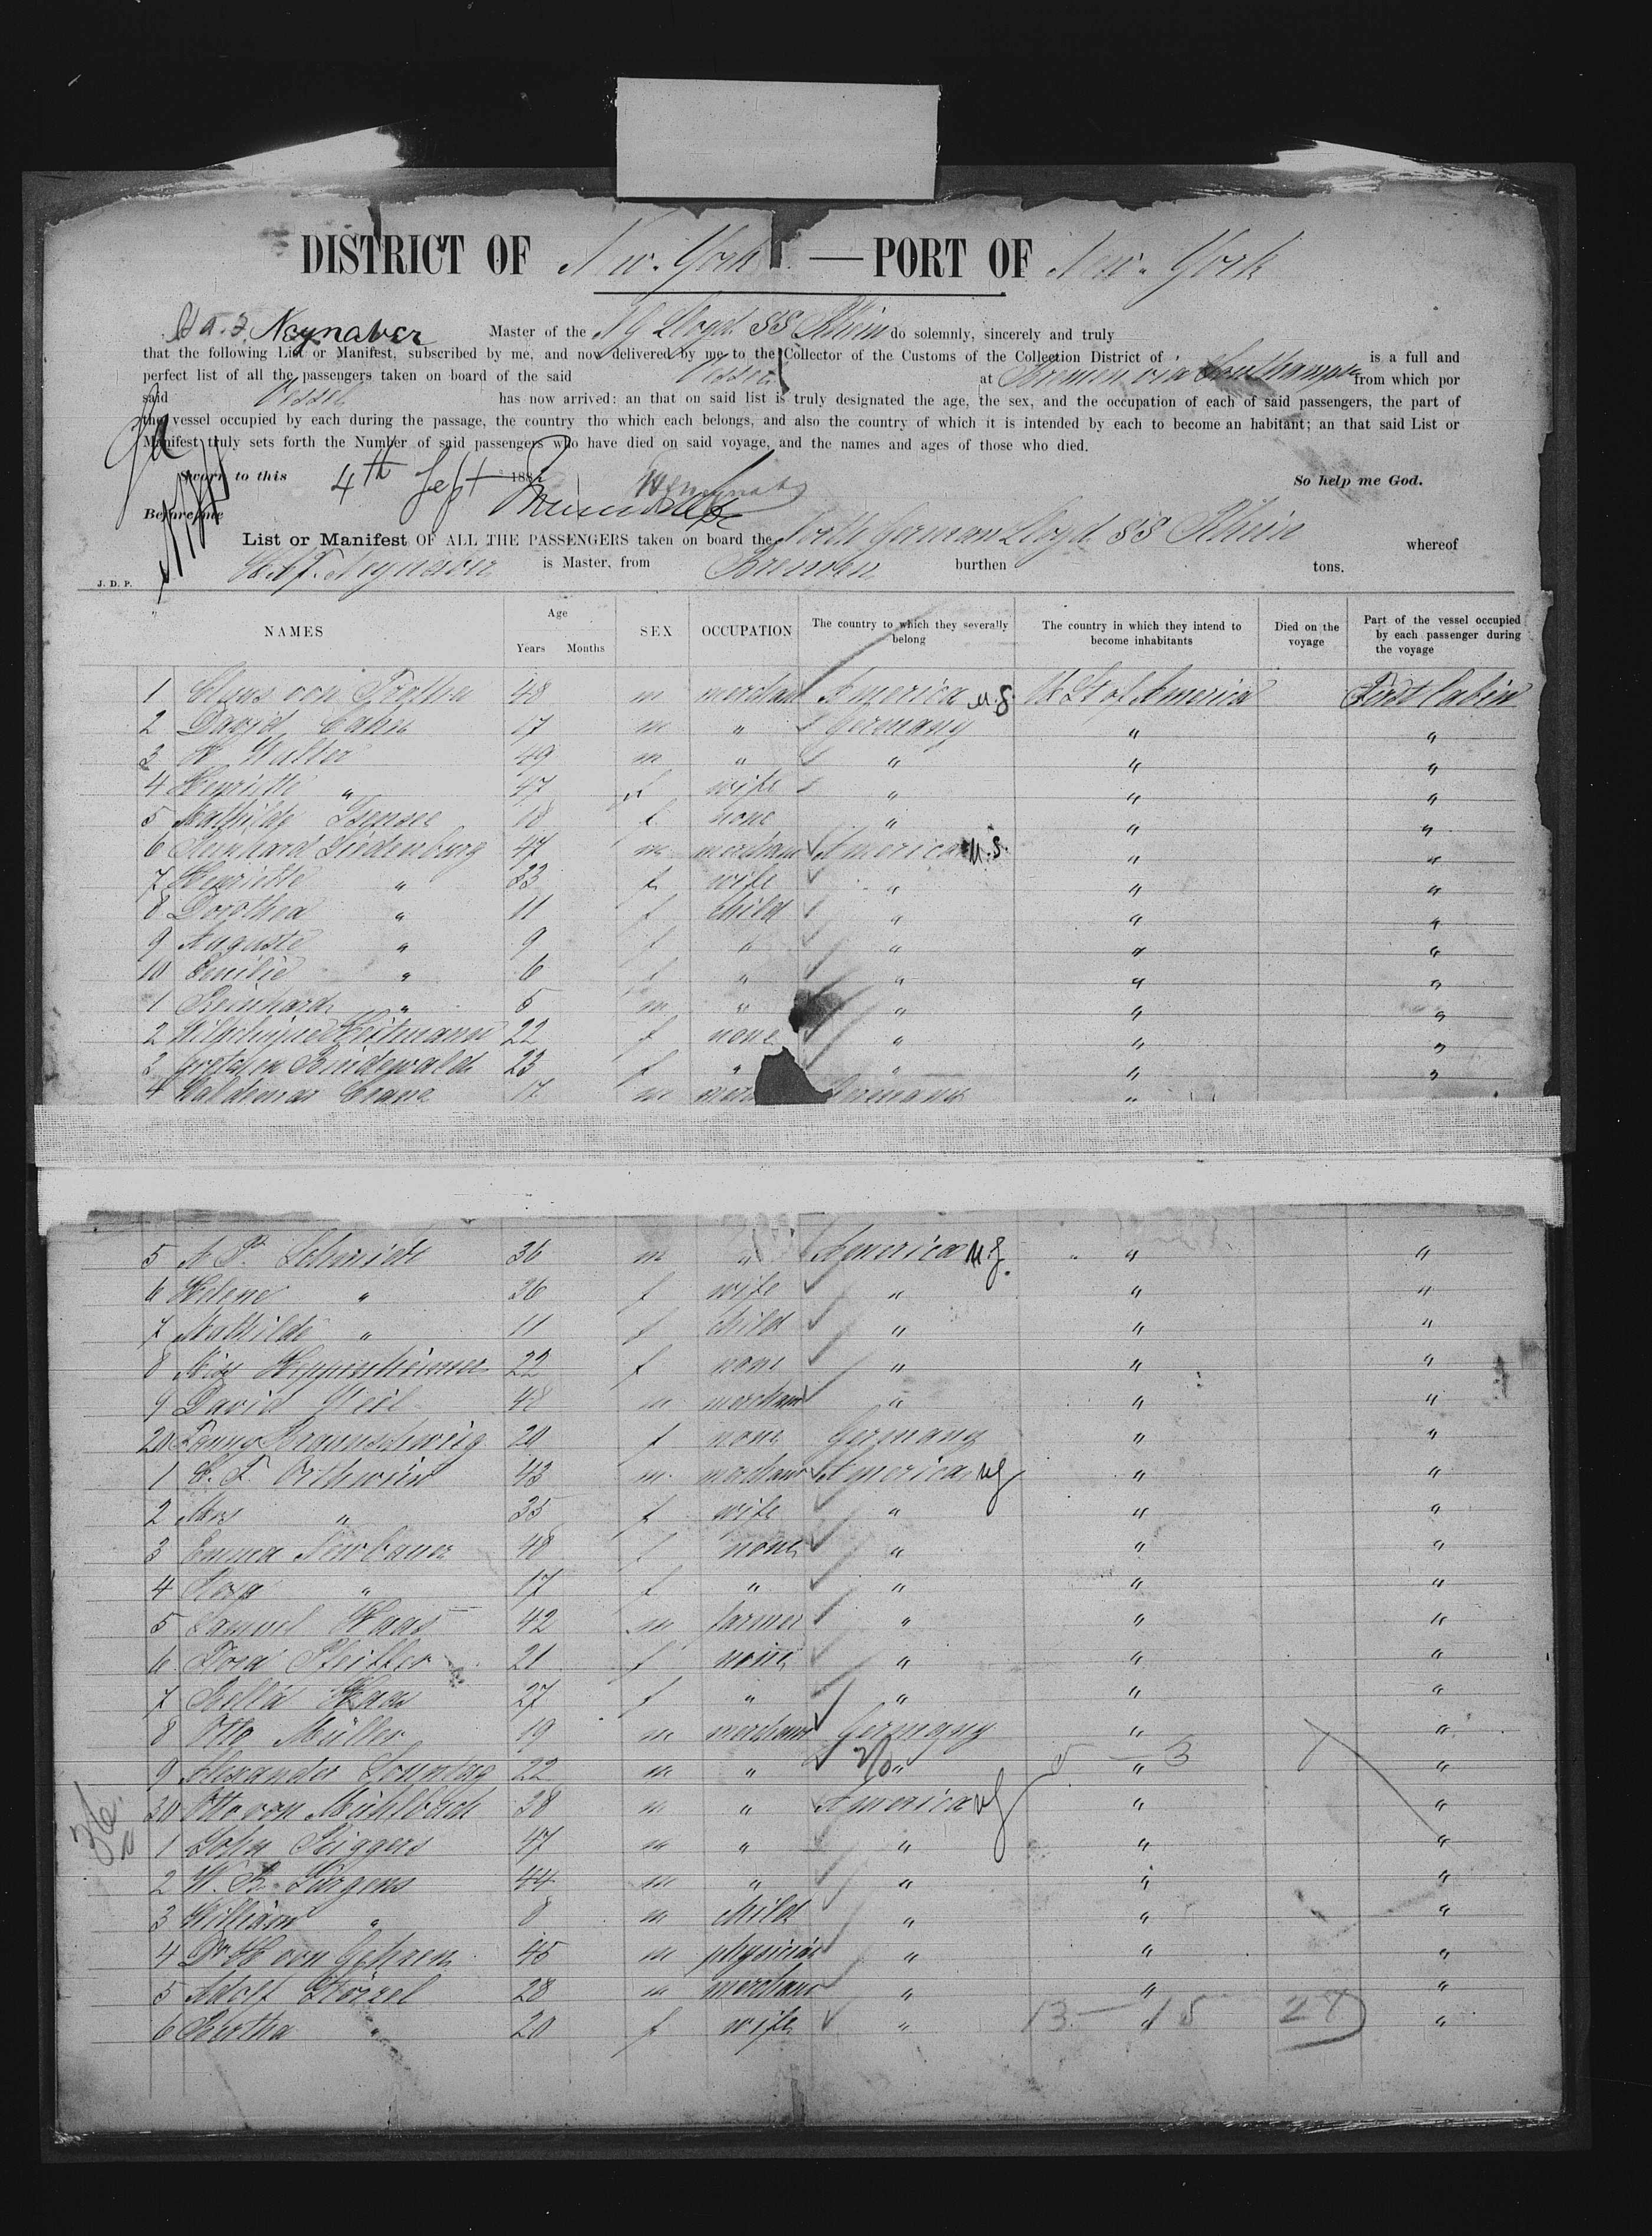 DISTRICT OF New-York — PORT OF New-York
Neynaber Master of the N G Lloyd SS Rhein do solemnly, sincerely and truly
that the following List or Manifest, subscribed by me, and now delivered by me to the Collector of the Customs of the Collection District of is a full and
perfect list of all the passengers taken on board of the said Vessel at Bremen via Southampton from which por
said Vessel has now arrived: an that on said list is truly designated the age, the sex, and the occupation of each of said passengers, the part of
the vessel occupied by each during the passage, the country tho which each belongs, and also the country of which it is intended by each to become an habitant; an that said List or
Manifest truly sets forth the Number of said passengers who have died on said voyage, and the names and ages of those who died.
Sworn to this 4th Sept 188 So help me God.
Before me
List or Manifest OF ALL THE PASSENGERS taken on board the North German Lloyd SS Rhein whereof
Neynaber is Master, from Bremen burthen tons.
J. D. P.
NAMES Age Years Months SEX OCCUPATION The country to which they severally belong The country in which they intend to become inhabitants Died on the voyage Part of the vessel occupied by each passenger during the voyage
1 von Trotha 48 m merchant America U.S. U St of America First Cabin
2 David Cahn 17 m " Germany " "
3 Walter 49 m " " " "
4 Henriette " 47 f wife " " "
5 Mathilde Isensee 18 f none " " "
6 Reinhard Siedenburg 47 m merchant America U.S. " "
7 Henriette " 33 f wife " " "
8 Dorothea " 11 f child " " "
9 Auguste " 9 f " " " "
10 Emilie " 6 f " " " "
1 Reinhard " 5 m " " " "
2 Wilhelmine Heitmann 22 f none " " "
3 Gretchen Bindewald 23 f " " " "
4 Waldemar 17 m mer Germany "
5 A Schmidt 36 m " America U.S. " "
6 Helene " 26 f wife " " "
7 Mathilde " 11 f child " " "
8 Miss Heppenheimer 22 f none " " "
9 David Weil 48 m merchant " " "
20 Fanny Braunschweig 20 f none Germany " "
1 C. F. Orthwein 43 m merchant America US " "
2 Mrs " 35 f wife " " "
3 Emma Newbauer 48 f none " " "
4 Rosa " 17 f " " " "
5 Samuel Haas 42 m farmer " " "
6 Dora Pfeiffer 21 f none " " "
7 Bella Haas 27 f " " " "
8 Otto Müller 19 m merchant Germany " "
9 Alexander Sonntag 22 m " " " "
30 Otto von Mühlbach 38 m " America US " "
1 John Riggers 47 m " " " "
2 W. B. Jürgens 44 m " " " "
3 William " 8 m child " " "
4 Dr von 45 m physician " " "
5 Adolf 28 m merchant " " "
6 Bertha " 20 f wife " " "
13 — 15 28
36